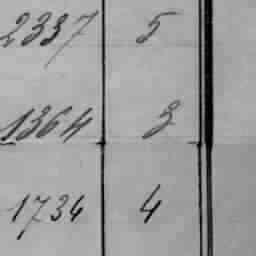 2337 5
1364 3
1734 4